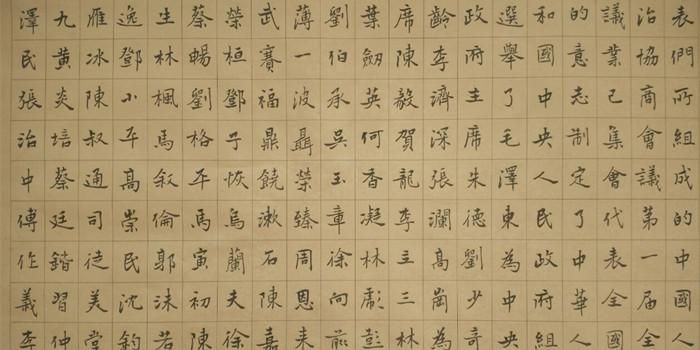 表們所組成的中國人
治協商會議第一届全
議業已集會代表全國
的意志制定了中華人
和國中央人民政府組
選舉了毛澤東為中央
政府主席朱德劉少奇
齡李濟深張瀾高崗為
席陳毅賀龍李立三林
葉劍英何香凝林彪彭
劉伯承吳玉章徐向前
薄一波聶榮臻周恩来
武賽福鼎饒漱石陳嘉
榮桓鄧子恢烏蘭夫徐
蔡暢劉格平馬寅初陳
生林楓馬叙倫郭沫若
逸鄧小平高崇民沈鈞
雁冰陳叔通司徒美堂
九黄炎培蔡廷鍇習仲
澤民張治中傅作義李